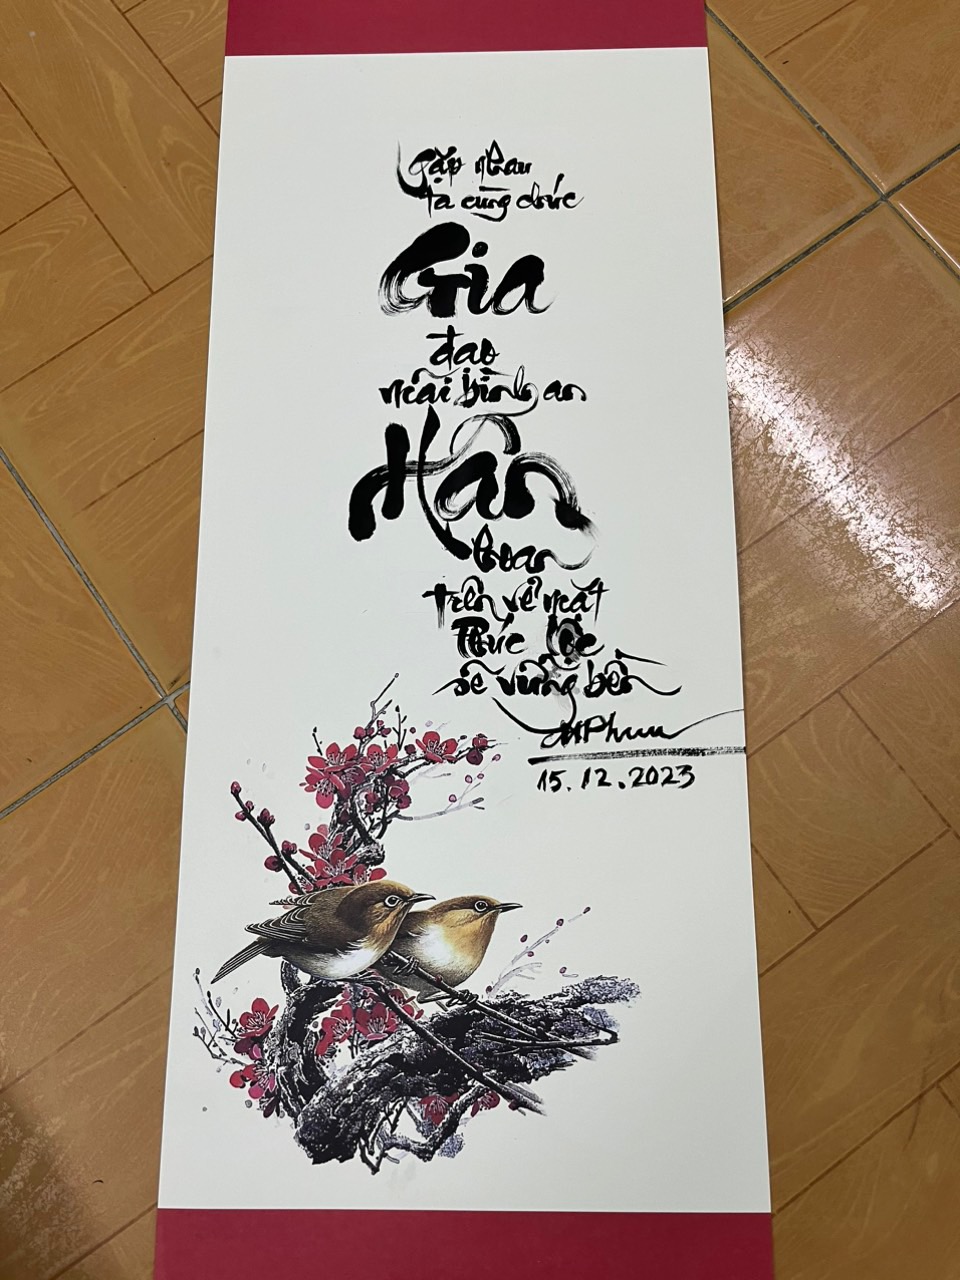 Gặp nhau
ta cùng chúc
Gia
đạo
mãi bình an
Hân
hoan
trên vẻ mặt
Phúc lộc
sẽ vững bền
15.12.2023